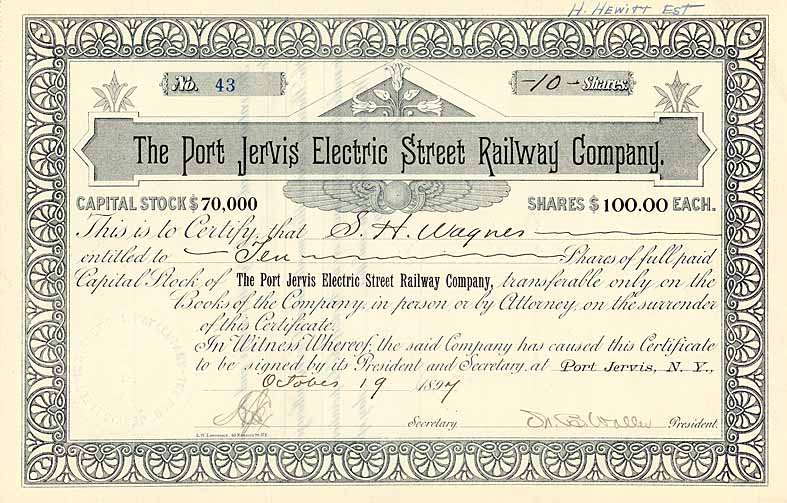 H. HEWITT EST
No. 43
-10- Shares
The Port Jervis Electric Street Railway Company.
CAPITAL STOCK $ 70,000
SHARES $ 100.00 EACH.
This is to Certify, that S. H. Wagner
entitled to Ten Shares of full paid
Capital Stock of The Port Jervis Electric Street Railway Company, transferable only on the
Books of the Company, in person or by Attorney, on the surrender
of this Certificate.
In Witness Whereof, the said Company has caused this Certificate
to be signed by its President and Secretary, at Port Jervis, N. Y.,
October 19 1897
Secretary.
President.